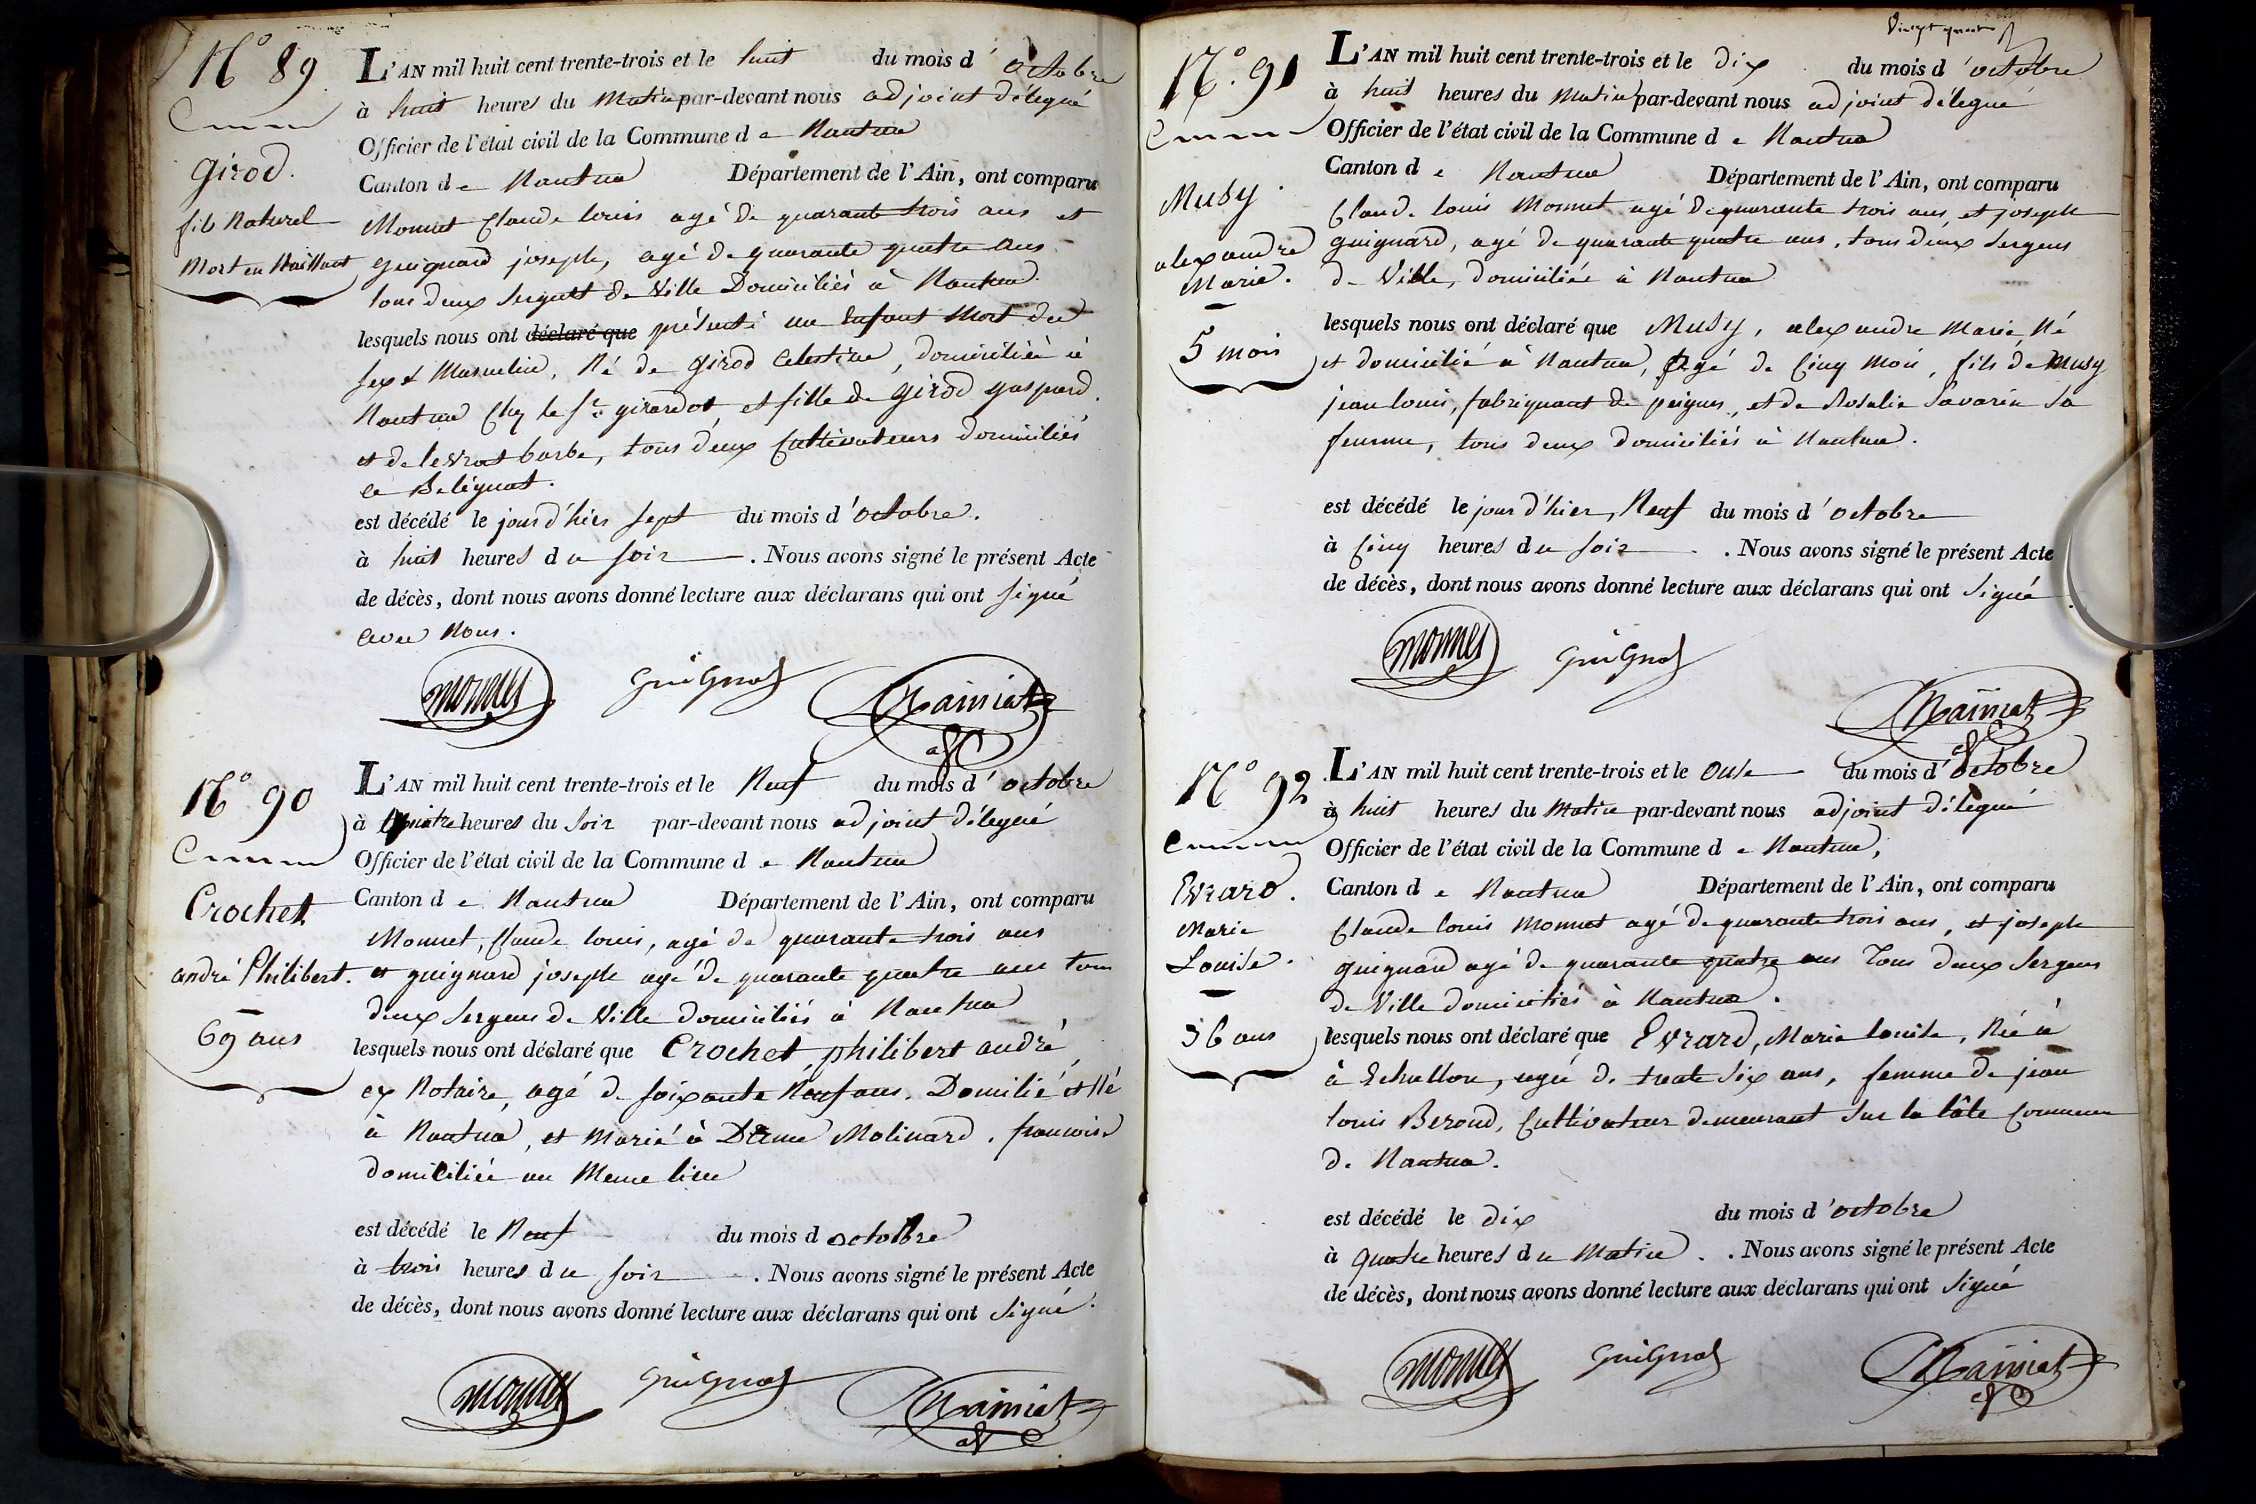 N° 89
Girod.
fils Naturel
Mort en Naissant
L'AN mil huit cent trente-trois et le huit du mois d'octobre
à huit heures du Matin par-devant nous adjoint délegué
Officier de l'état civil de la Commune de Nantua
Canton de Nantua Département de l'Ain, ont comparu
Monnet Claude louis agé de quarante trois ans et
guignard joseph, agé de quarante quatre ans
tous deux sergents de Ville Domiciliés à Nantua
lesquels nous ont déclaré que présenté un Enfant Mort du
sexe Masculin, Né de Girod Celestine, domiciliée à
Nantua Chez le Sr. girardot, et fille de Girod gaspard.
et de levrat barbe, tous deux Cultivateurs domiciliés
à Belignat.
est décédé le jour d'hier sept du mois d'octobre.
à huit heures du soir. Nous avons signé le présent Acte
de décès, dont nous avons donné lecture aux déclarans qui ont signé
avec Nous.
monnet Guignard
N° 90
Crochet
andré Philibert.
69 ans
L'AN mil huit cent trente-trois et le Neuf du mois d'octobre
à quatre heures du soir par-devant nous adjoint délegué
Officier de l'état civil de la Commune de Nantua
Canton de Nantua Département de l'Ain, ont comparu
Monnet, Claude louis, agé de quarante trois ans
et guignard joseph agé de quarante quatre ans tous
deux sergens de Ville domiciliés à Nantua
lesquels nous ont déclaré que Crochet philibert andré,
ex Notaire, agé de soixante Neuf ans. Domilié et Né
à Nantua, et Marié à Dame Molinard. francoise
domiciliée au Meme lieu
est décédé le Neuf du mois d octobre
à trois heures du soir. Nous avons signé le présent Acte
de décès, dont nous avons donné lecture aux déclarans qui ont signé.
monnet Guignard
Vingt quatre
N° 91
Musy.
alexandre
Marie.
5 mois
L'AN mil huit cent trente-trois et le dix du mois d'octobre
à huit heures du Matin par-devant nous adjoint délegué
Officier de l'état civil de la Commune de Nantua
Canton de Nantua Département de l'Ain, ont comparu
Claude louis Monnet agé de quarante trois ans, et joseph
guignard, agé de quarante quatre ans, tous deux sergens
de Ville, domiciliés à Nantua
lesquels nous ont déclaré que Musy, alexandre Marie Né
et domicilié à Nantua, agé de Cinq Mois, fils de Musy
jean louis, fabriquant de peignes, et de Rosalie Savarin sa
femme, tous deux domiciliés à Nantua.
est décédé le jour d'hier, Neuf du mois d'octobre
à Cinq heures du soir. Nous avons signé le présent Acte
de décès, dont nous avons donné lecture aux déclarans qui ont signé
monnet Guignard
N° 92
Evrard.
Marie
Louise.
36 ans
L'AN mil huit cent trente-trois et le onze du mois d'octobre
à huit heures du Matin par-devant nous adjoint délegué
Officier de l'état civil de la Commune de Nantua,
Canton de Nantua Département de l'Ain, ont comparu
Claude louis Monnet agé de quarante trois ans, et joseph
guignard agé de quarante quatre ans Tous deux sergens
de Ville domiciliés à Nantua.
lesquels nous ont déclaré que Evrard, Marie louise, Née à
à Echallon, agée de trente six ans, femme de jean
louis Beroud, Cultivateur demeurant sur la Côte Commune
de Nantua.
est décédé le dix du mois d'octobre
à quatre heures du Matin. Nous avons signé le présent Acte
de décès, dont nous avons donné lecture aux déclarans qui ont signé
monnet Guignard